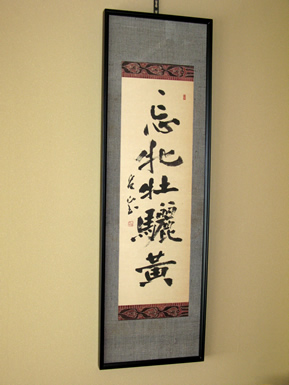 忘牝牡驪黃